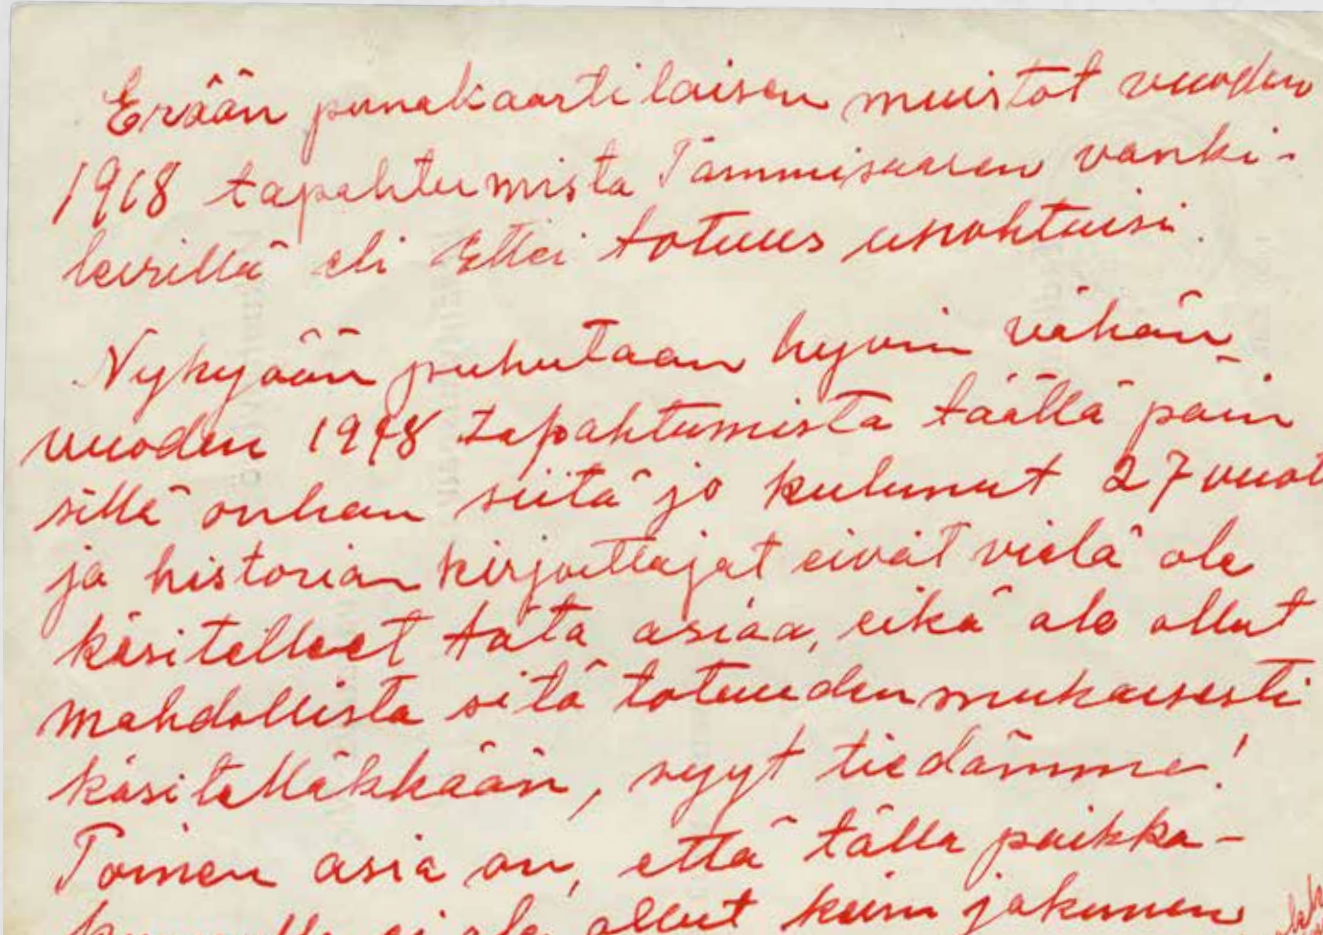 Erään punakaartilaisen muistot vuoden
1918 tapahtumista Tammisaaren vanki-
leirillä eli Ettei totuus unohtuisi.
Nykyään puhutaan hyvin vähän
vuoden 1918 tapahtumista täällä päin
sillä onhan siitä jo kulunut 27 vuot
ja historian kirjoittajat eivät vielä ole
käsitelleet tätä asiaa, eikä ole ollut
mahdollista sitä totuudenmukaisesti
käsitelläkkään, syyt tiedämme!
Toinen asia on, että tällä paikka-
ei ole ollut kuin jokunen